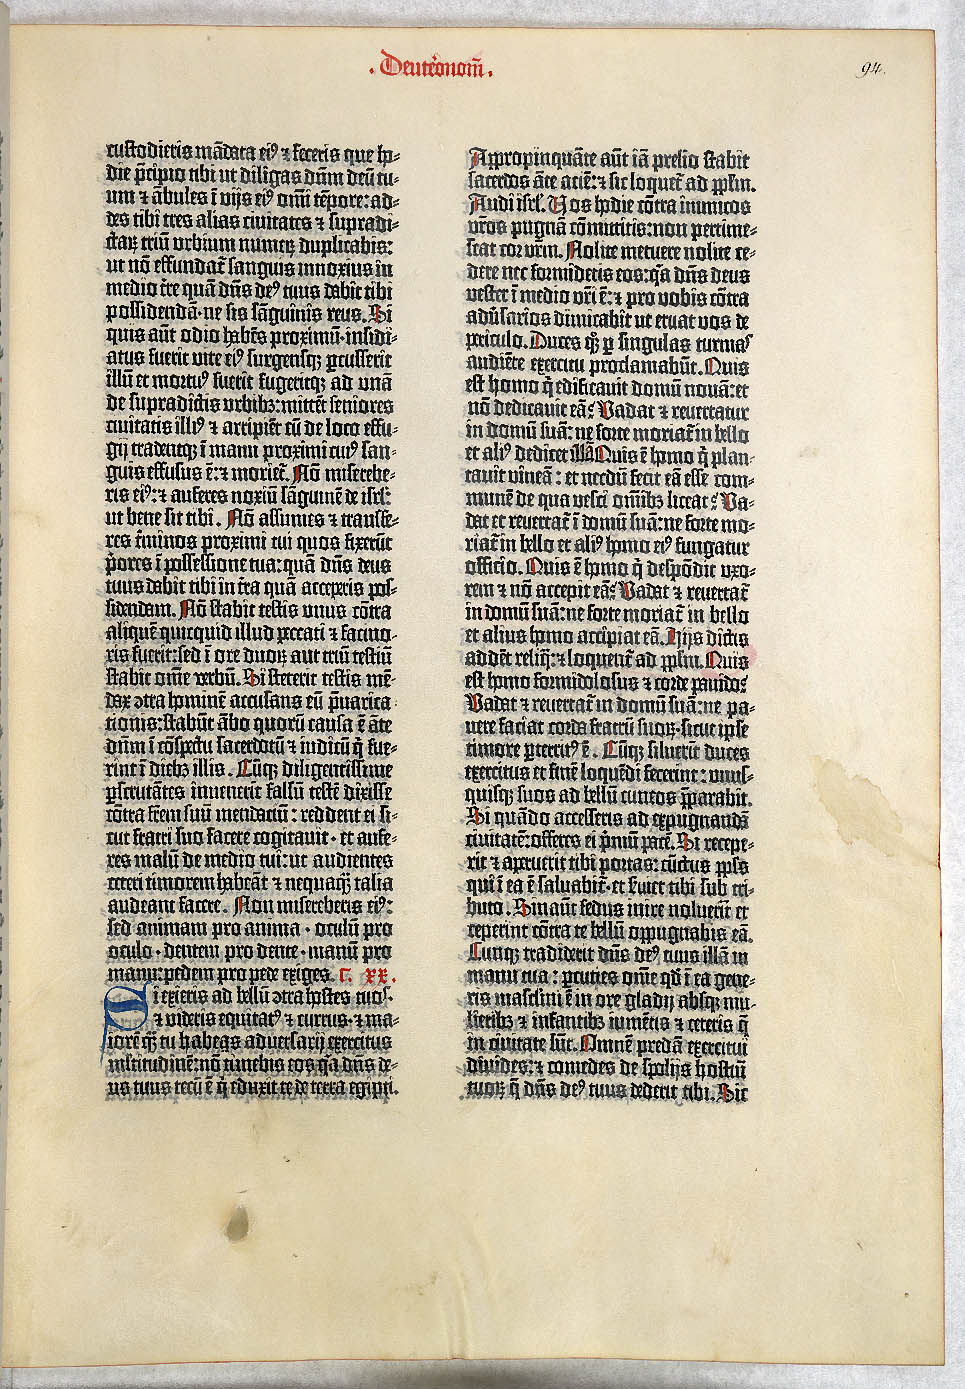 .Deuteronom̄.
94.
custodieris mādata ei⁹ ⁊ feceris que ho-
die p̄cipio tibi ut diligas dn̄m deū tu-
um ⁊ ābules ī vijs ei⁹ om̄i tēpore: ad-
des tibi tres alias civitates ⁊ supradi-
ctaꝝ triū urbium numeꝝ duplicabis:
ut nō effundat̄ sanguis innoxius in
medio t̄re quā dn̄s de⁹ tuus dabit tibi
possidendā · ne sis sāguinis reus. Si
quis aūt odio habēs proximū · insidi-
atus fuerit vite ei⁹ surgensqꝫ ꝑcusserit
illū et mortu⁹ fuerit fugeritqꝫ ad unā
de supradictis urbibꝫ: mittēt seniores
civitatis illi⁹ ⁊ arripiēt eū de loco effu-
gij tradentqꝫ ī manu proximi cui⁹ san-
guis effusus ē: ⁊ moriet̄. Nō miserebe-
ris ei⁹: ⁊ auferes noxiū sāguinē de isrl̄:
ut bene sit tibi. Nō assumes ⁊ transfe-
res t̄minos proximi tui quos fixerūt
p̄ores ī possessione tua: quā dn̄s deus
tuus dabit tibi in t̄ra quā acceperis pos-
sidendam. Nō stabit testis unus cōtra
aliquē quicquid illud peccati ⁊ facino-
ris fuerit: sed ī ore duoꝝ aut triū testiū
stabit om̄e verbū. Si steterit testis mē-
dax ꝯtra hominē accusans eū p̄varica
tionis: stabūt ābo quorū causa ē āte
dn̄m ī cōspectu sacerdotū ⁊ iudicū q̄ fue-
rint ī diebꝫ illis. Cūqꝫ diligentissime
ꝑscrutātes invenerit falsū testē dixisse
cōtra fr̄em suū mendaciū: reddent ei si-
cut fratri suo facere cogitavit · et aufe-
res malū de medio tui: ut audientes
ceteri timorem habeāt ⁊ nequaqꝫ̄ talia
audeant facere. Non misereberis ei⁹:
sed animam pro anima · oculū pro
oculo · dentem pro dente · manū pro
manu: pedem pro pede exiges. c. xx.
Si exieris ad bellū ꝯtra hostes tuos.
⁊ videris equitat⁹ ⁊ currus · ⁊ ma-
iorē qꝫ̄ tu habeas adversarij exercitus
multitudinē: nō timebis eos q̄a dn̄s de-
us tuus tecū ē q̄ eduxit te de terra egipti.
Appropinquāte aūt iā prelio stabit
sacerdos āte aciē: ⁊ sic loquet̄ ad ppl̄m.
Audi isrl̄. Vos hodie cōtra inimicos
vr̄os pugnā cōmittitis: non pertime-
scat cor vr̄m. Nolite metuere nolite ce-
dere nec formidetis eos: q̄a dn̄s deus
vester ī medio vr̄i ē: ⁊ pro vobis cōtra
adūsarios dimicabit ut eruat vos de
periculo. Duces qꝫ̄ ꝑ singulas turmas
audiēte exercitu proclamabūt. Quis
est homo q̄ edificavit domū novā: et
nō dedicavit eā? Vadat ⁊ revertatur
in domū suā: ne forte moriat̄ in bello
et ali⁹ dedicet illā Quis ē homo q̄ plan-
tavit vineā: et necdū fecit eā esse com-
munē de qua vesci om̄ibꝫ liceat? Va-
dat et revertat̄ ī domū suā: ne forte mo-
riat̄ in bello et ali⁹ homo ei⁹ fungatur
officio. Quis ē homo q̄ despōdit uxo-
rem ⁊ nō accepit eā? Vadat ⁊ revertat̄
in domū suā: ne forte moriat̄ in bello
et alius homo accipiat eā. Hijs dictis
addēt reliq̄: ⁊ loquent̄ ad ppl̄m. Quis
est homo formidolosus ⁊ corde pavido?
Vadat ⁊ revertat̄ in domū suā: ne pa-
vere faciat corda fratrū suoꝝ · sicut ipse
timore ꝑterrit⁹ ē. Cūqꝫ siluerīt duces
exercitus et finē loquēdi fecerint: unus-
quisqꝫ suos ad bellū cuneos p̄parabit.
Si quādo accesseris ad expugnandā
civitatē: offeres ei p̄mū pacē. Si recepe-
rit ⁊ aperuerit tibi portas: cūctus ppl̄s
qui ī ea ē salvabit̄ · et s̄viet tibi sub tri-
buto. Sin aūt fedus inire noluerīt et
ceperint cōtra te bellū oppugnabis eā.
Cunqꝫ tradiderit dn̄s de⁹ tuus illā in
manu tua: ꝑcuties om̄e qd̄ ī ea gene-
ris masclini ē in ore gladij absqꝫ mu-
lieribꝫ ⁊ infantibꝫ iumētis ⁊ ceteris q̄
in civitate sūt. Omnē predā exercitui
dīvides: ⁊ comedes de spolijs hostiū
tuoꝝ q̄ dn̄s de⁹ tuus dederit tibi. Sic